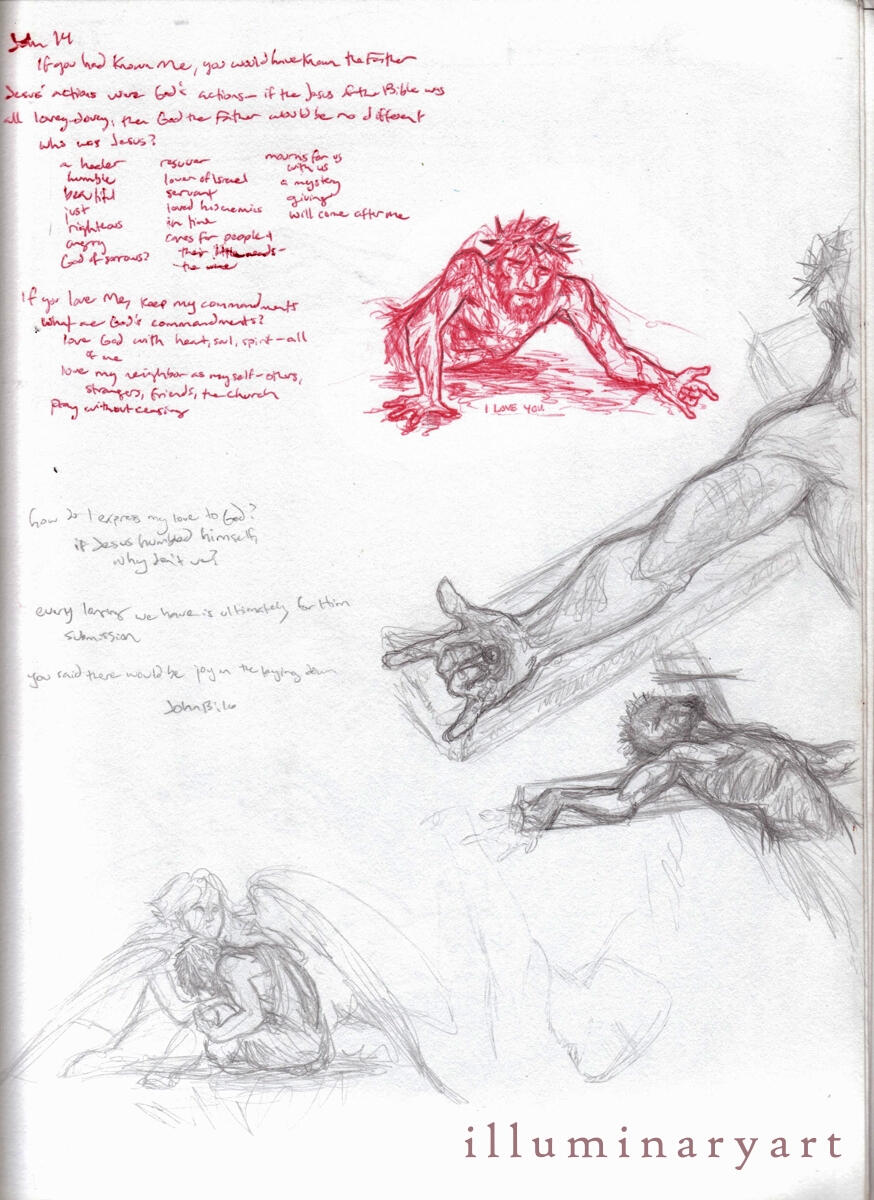 John 14
If you had known Me, you would have known the Father
Jesus' actions were God's actions - if the Jesus of the Bible was
all lovey-dovey, then God the Father would be no different
who was Jesus?
a healer
humble
beautiful
just
righteous
angry
God of sorrows?
rescuer
lover of Israel
servant
loved his enemies
in time
cares for people &
their little needs -
the wine
mourns for us
with us
a mystery
giving
will come after me
If you love Me, keep my commandments
What are God's commandments?
love God with heart, soul, spirit - all
of me
love my neighbor as myself - others,
strangers, friends, the church
Pray without ceasing
I LOVE YOU
how do I express my love to God?
if Jesus humbled himself,
why don't we?
every longing we have is ultimately for Him
submission
you said there would be joy in the laying down
John
illuminaryart